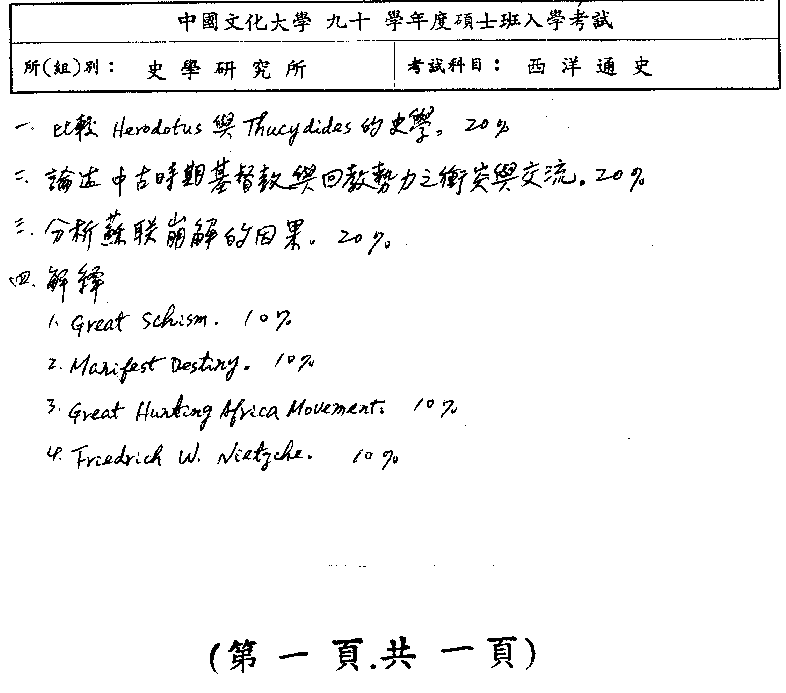 中國文化大學 九十 學年度碩士班入學考試
所(組)別： 史學研究所 考試科目： 西洋通史
一. 比較 Herodotus 與 Thucydides 的史學。20%
二. 論述中古時期基督教與回教勢力之衝突與交流。20%
三. 分析蘇联崩解的因果。20%
四. 解釋
1. Great Schism. 10%
2. Manifest Destiny. 10%
3. Great Hunting Africa Movement. 10%
4. Friedrich W. Nietzche. 10%
(第一頁.共一頁)